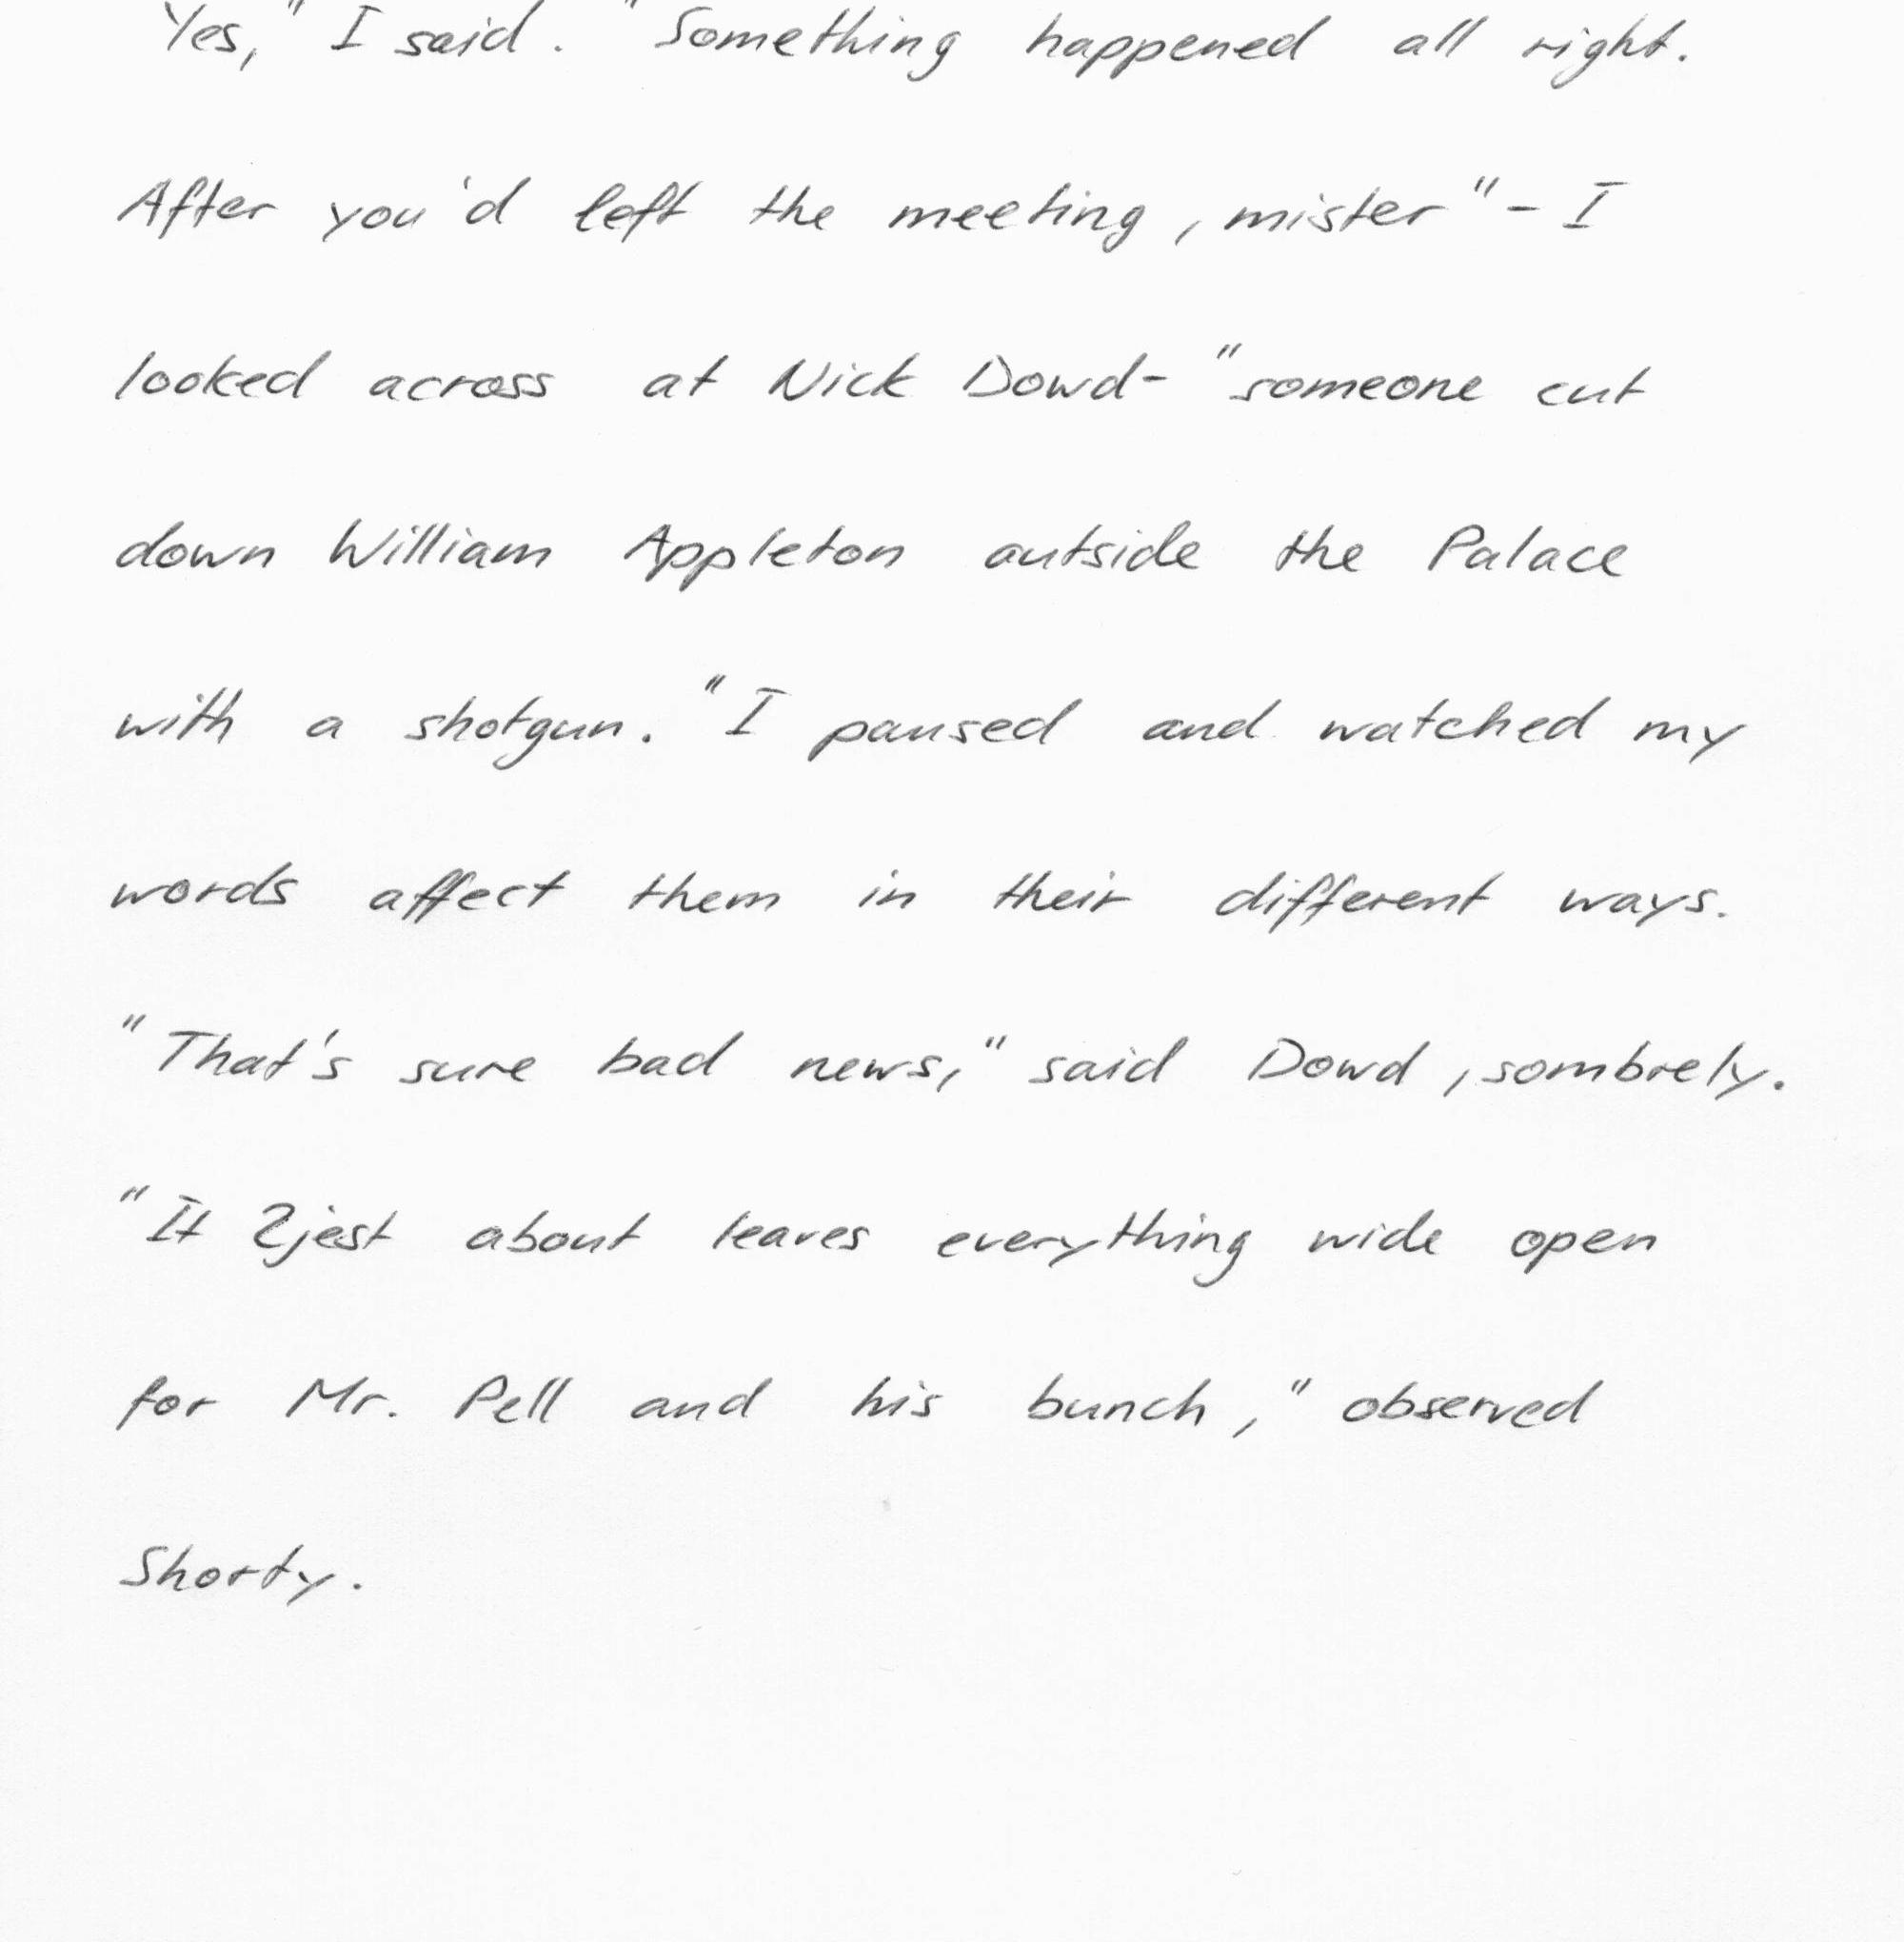 Yes," I said. "Something happened all right.
After you'd left the meeting, mister" - I
looked across at Nick Dowd - "someone cut
down William Appleton outside the Palace
with a shotgun. "I paused and watched my
words affect them in their different ways.
"That's sure bad news," said Dowd, sombrely.
"It 2jest about leaves everything wide open
for Mr. Pell and his bunch," observed
Shorty.